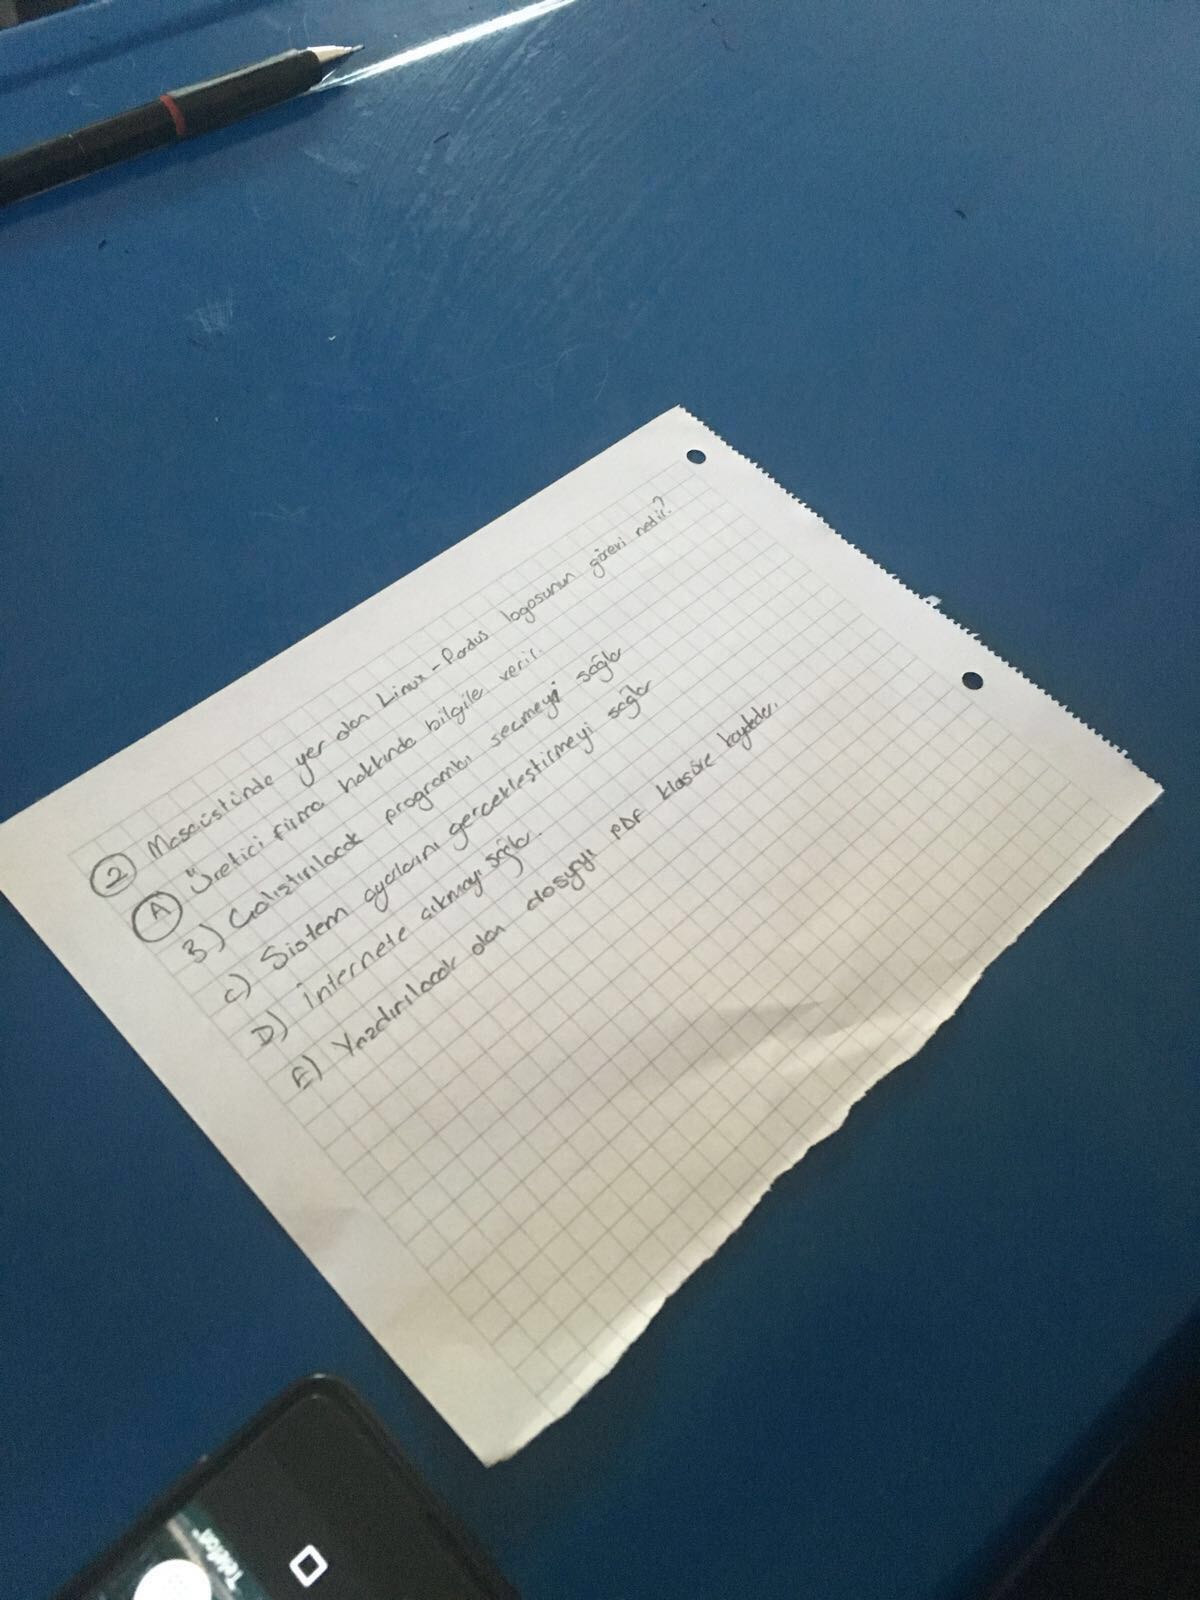 2 Masaüstünde yer alan Linux-Pardus logosunun görevi nedir?
A Üretici firma hakkında bilgile verir.
B) Çalıştırılacak programı seçmeyi sağlar
C) Sistem ayarlarını gerçekleştirmeyi sağlar
D) İnternete çıkmayı sağlar.
E) Yazdırılacak olan dosyayı PDF klasöre kaydeder.
Telefon